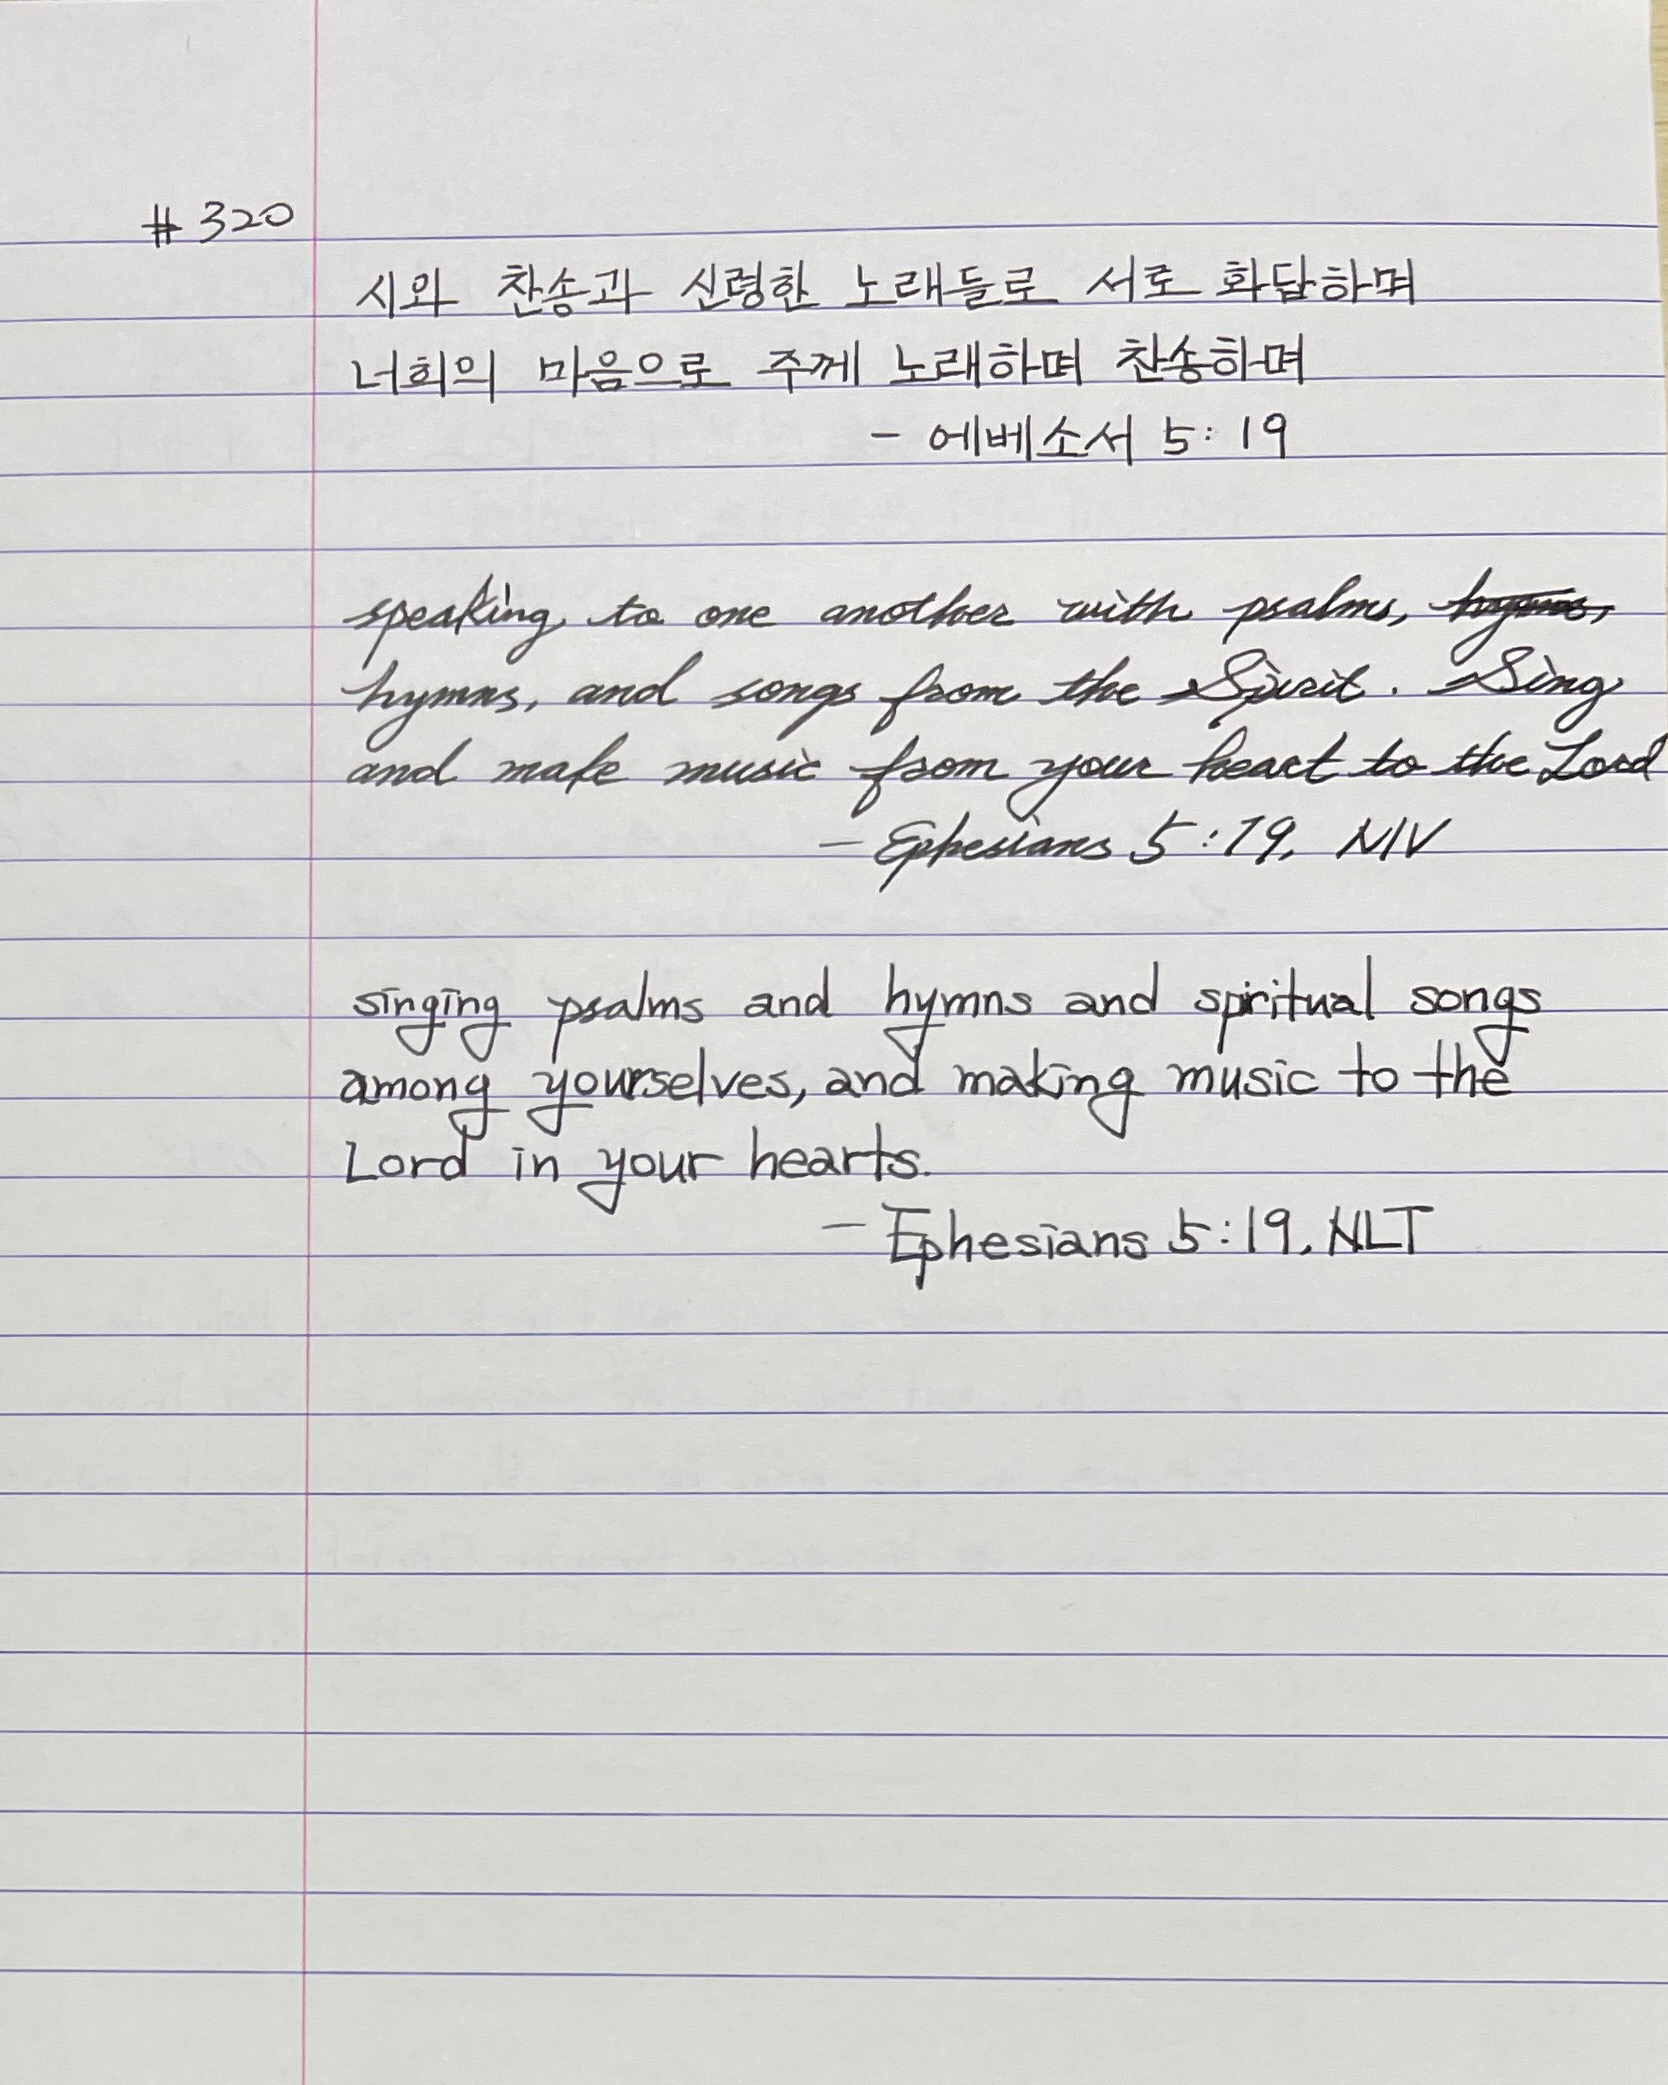 # 320
시와 찬송과 신령한 노래들로 서로 화답하며
너희의 마음으로 주께 노래하며 찬송하며
- 에베소서 5:19
speaking to one another with psalms, hymns,
hymns, and songs from the Spirit. Sing
and make music from your heart to the Lord
- Ephesians 5:19, NIV
singing psalms and hymns and spiritual songs
among yourselves, and making music to the
Lord in your hearts.
- Ephesians 5:19, NLT